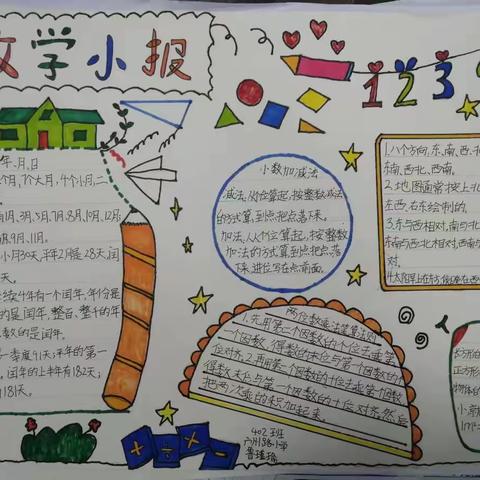 数学小报
1 2 3
年、月、日
个月,7个大月,4个小月,二
月、3月、5月、7月、8月、10月、12月
月、9月、11月。
小月30天,平年2月是28天,闰
天。
续4年有一个闰年,年份是
的是闰年,整百、整千的年
数的是闰年。
季度91天;平年的第一
闰年的上半年有182天;
181天。
小数加减法
减法,从个位算起,按整数减法
的方式算,到点把点落下来。
加法,从个位算起,按整数
加法的方式算到点把点落
下来,进位写在点前面。
1.八个方向,东、南、西、北
东南、西北、西南。
2.地图通常按上北
左西、右东绘制的。
3.东与西相对,南与北
东南与西北相对,西南与
对。
4.太阳早上在东方
两位数乘法笔算法则
1.先用第二个因数的个位去乘第
一个因数,得数的末位与第一个因数的个
位对齐,2.再用第二个因数的十位去乘第一个因数,
得数末位与第一个因数的十位对齐,然后
把两次乘的积加起来。
402班
六川路小学
长方形
正方形
物体的